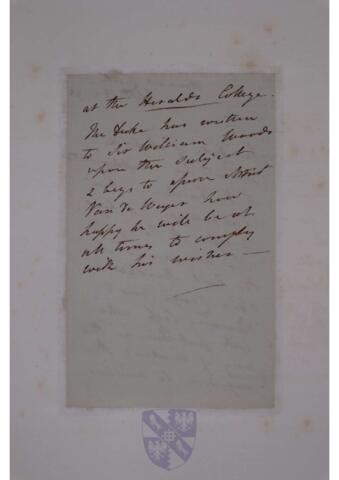 at the Heralds College.
The Duke has written
to Sir William Woods
upon the subject
& begs to assure Monsr
Van de Weyer how
happy he will be at
all times to comply
with his wishes —